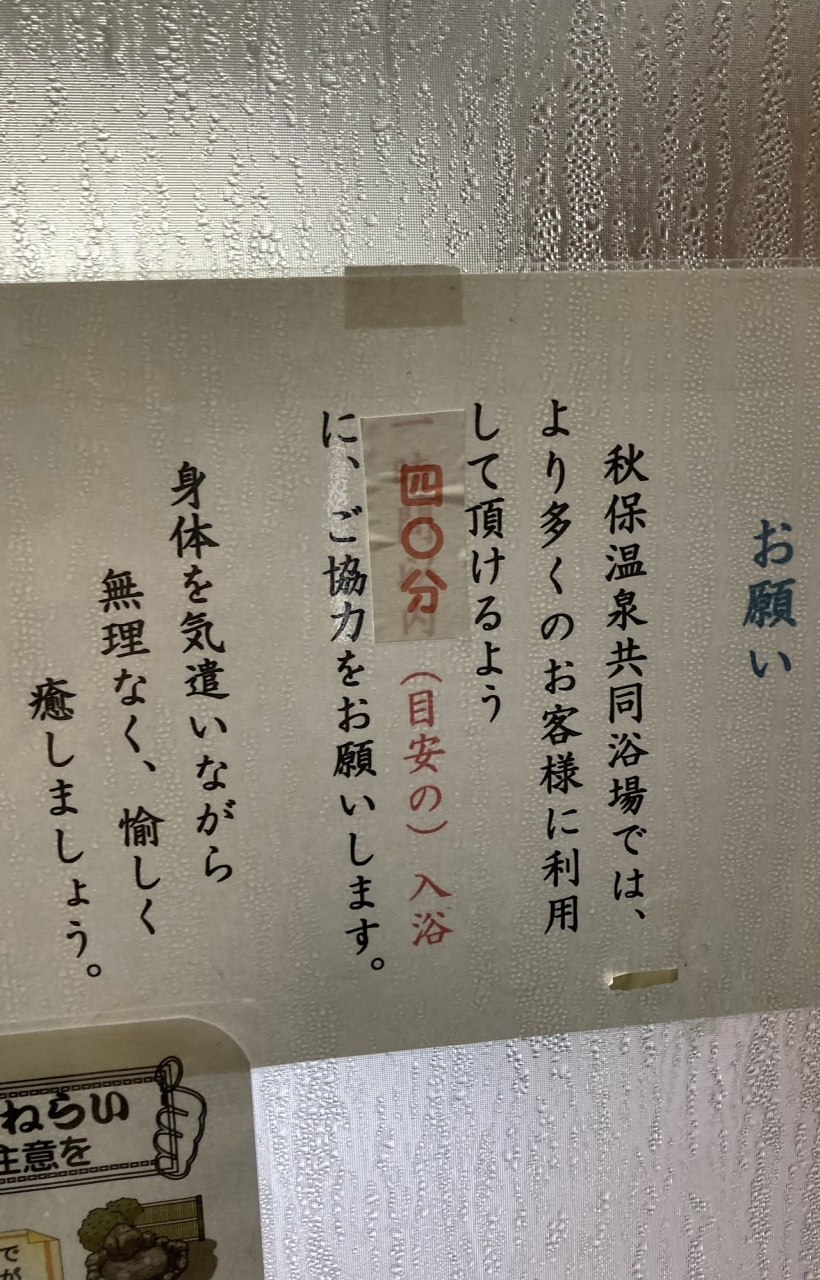 お願い
秋保温泉共同浴場では、
より多くのお客様に利用
して頂けるよう
四〇分（目安の）入浴
に、ご協力をお願いします。
身体を気遣いながら
無理なく、愉しく
癒しましょう。
ねらい
注意を
で
が